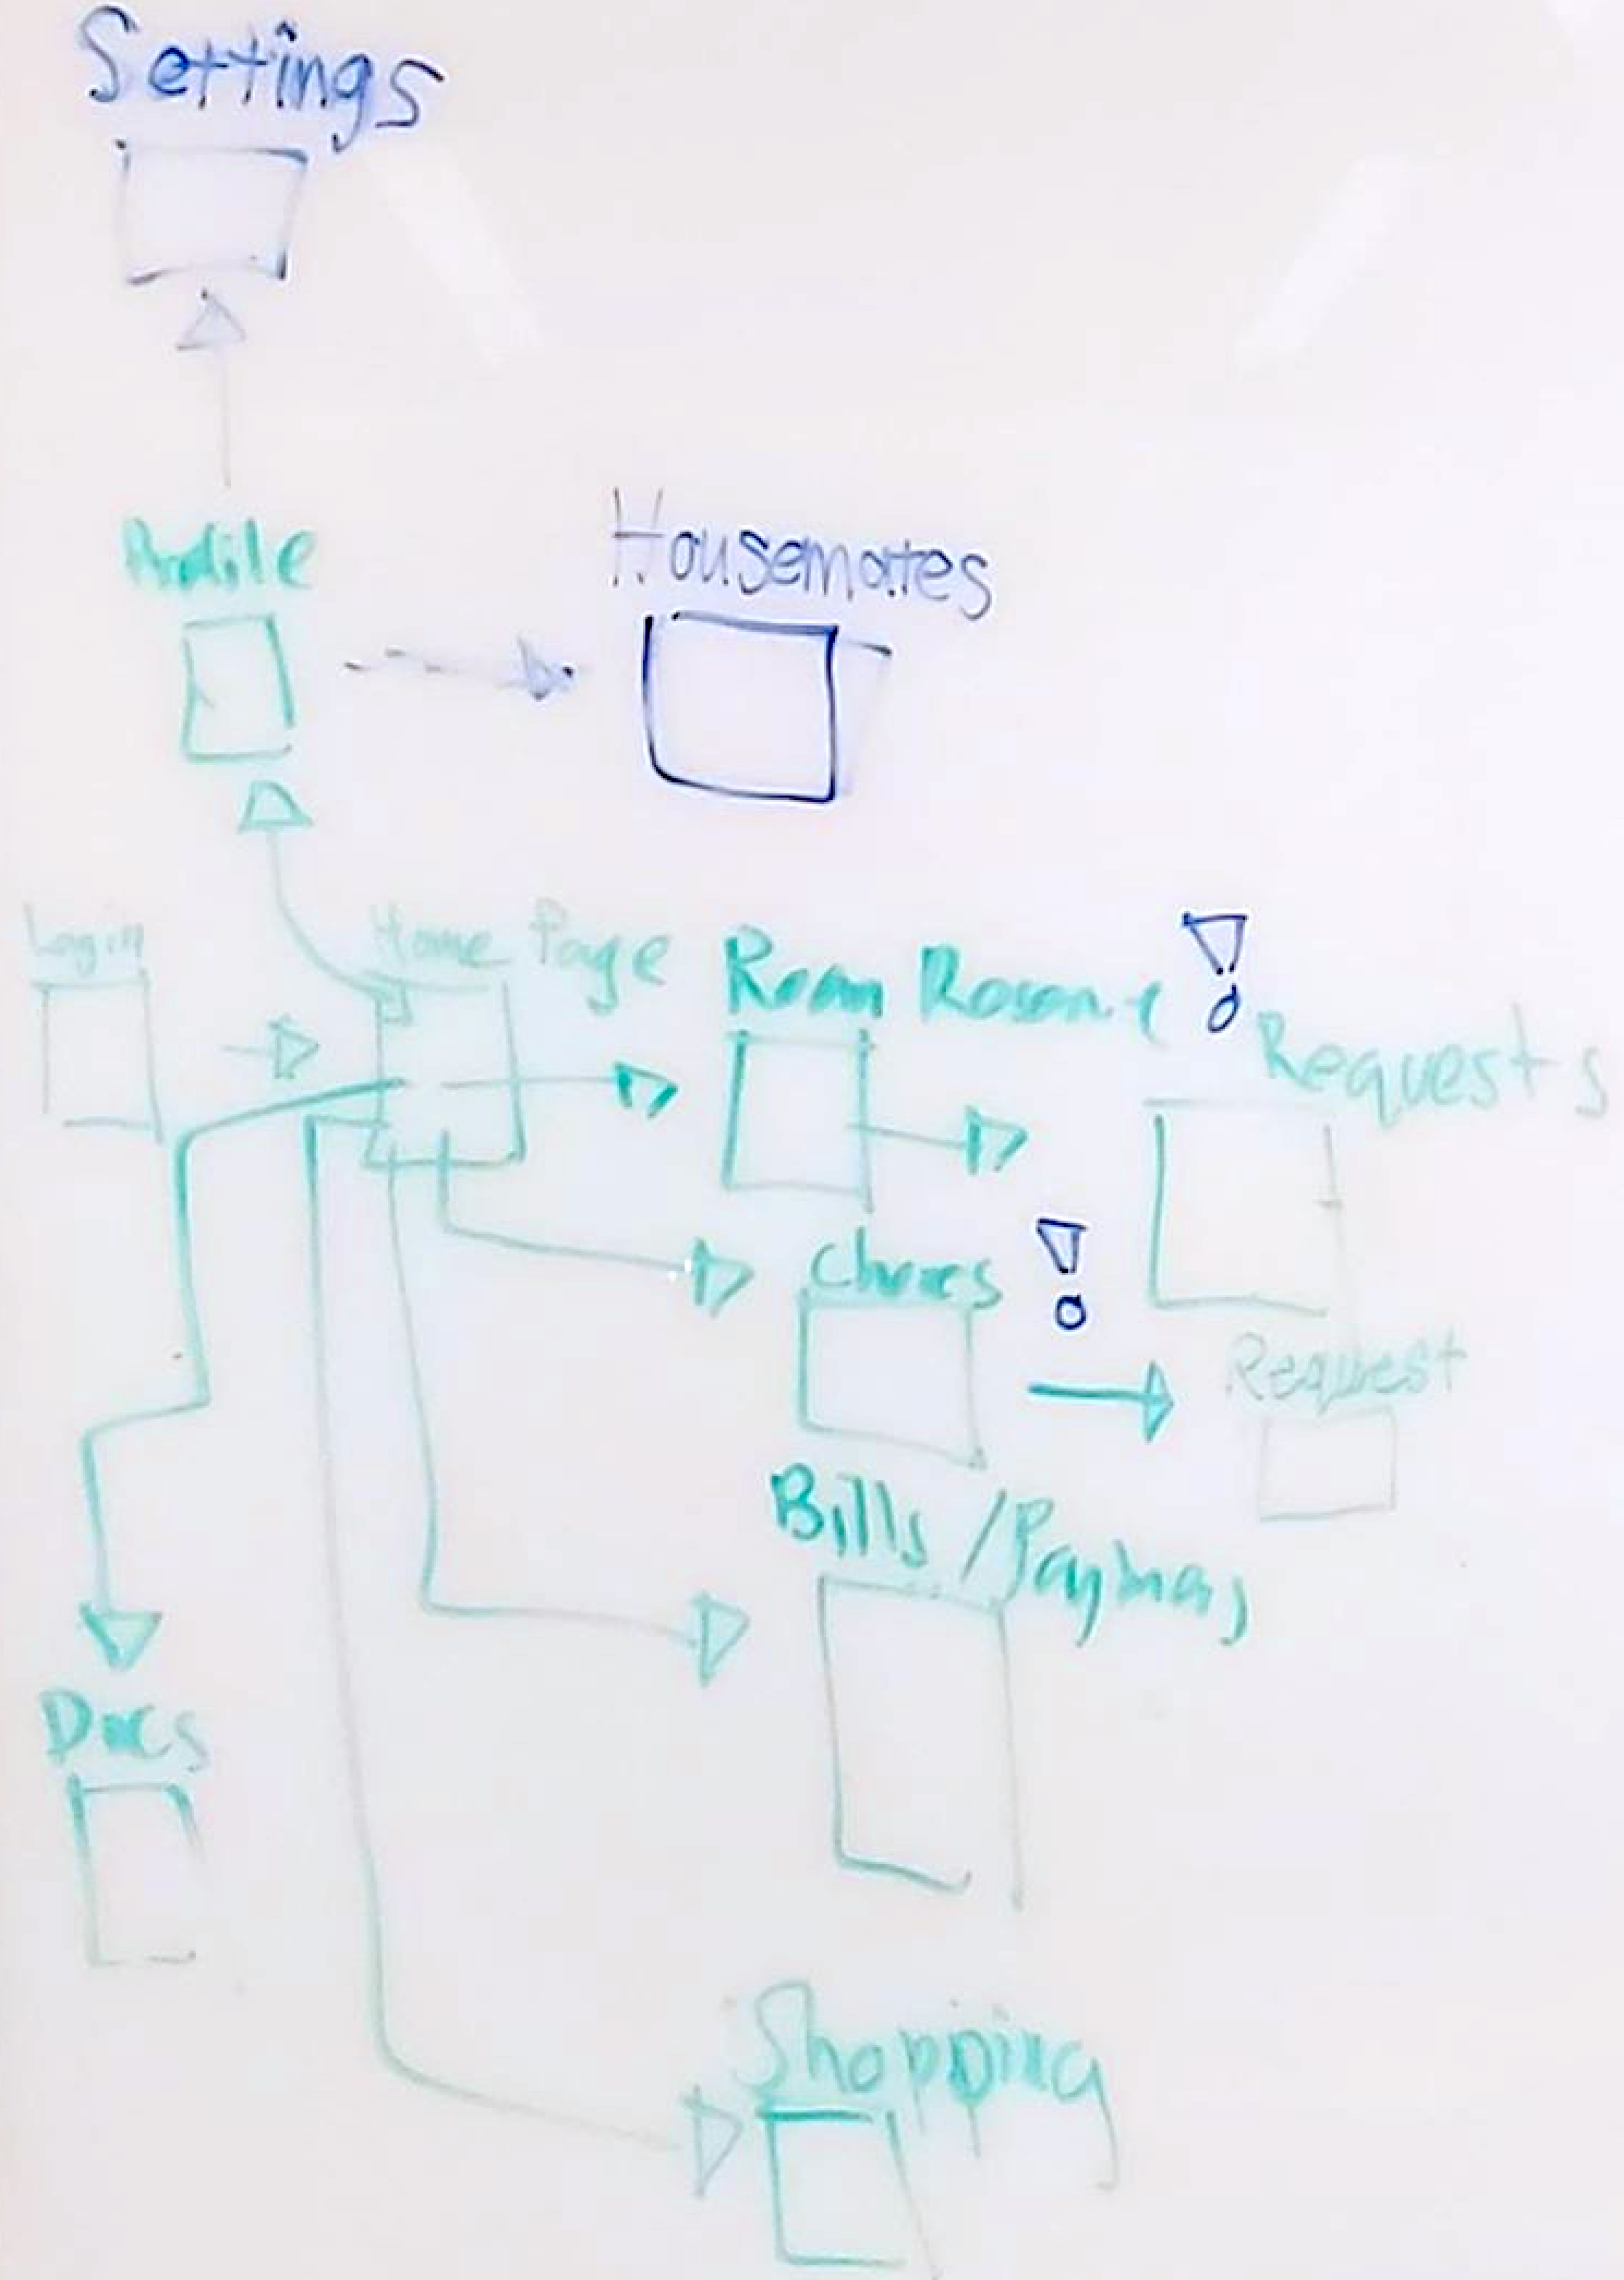 Settings
Profile
Housemates
Login
Home Page
Room
!
Requests
Chores
!
Request
Bills /
Docs
Shopping